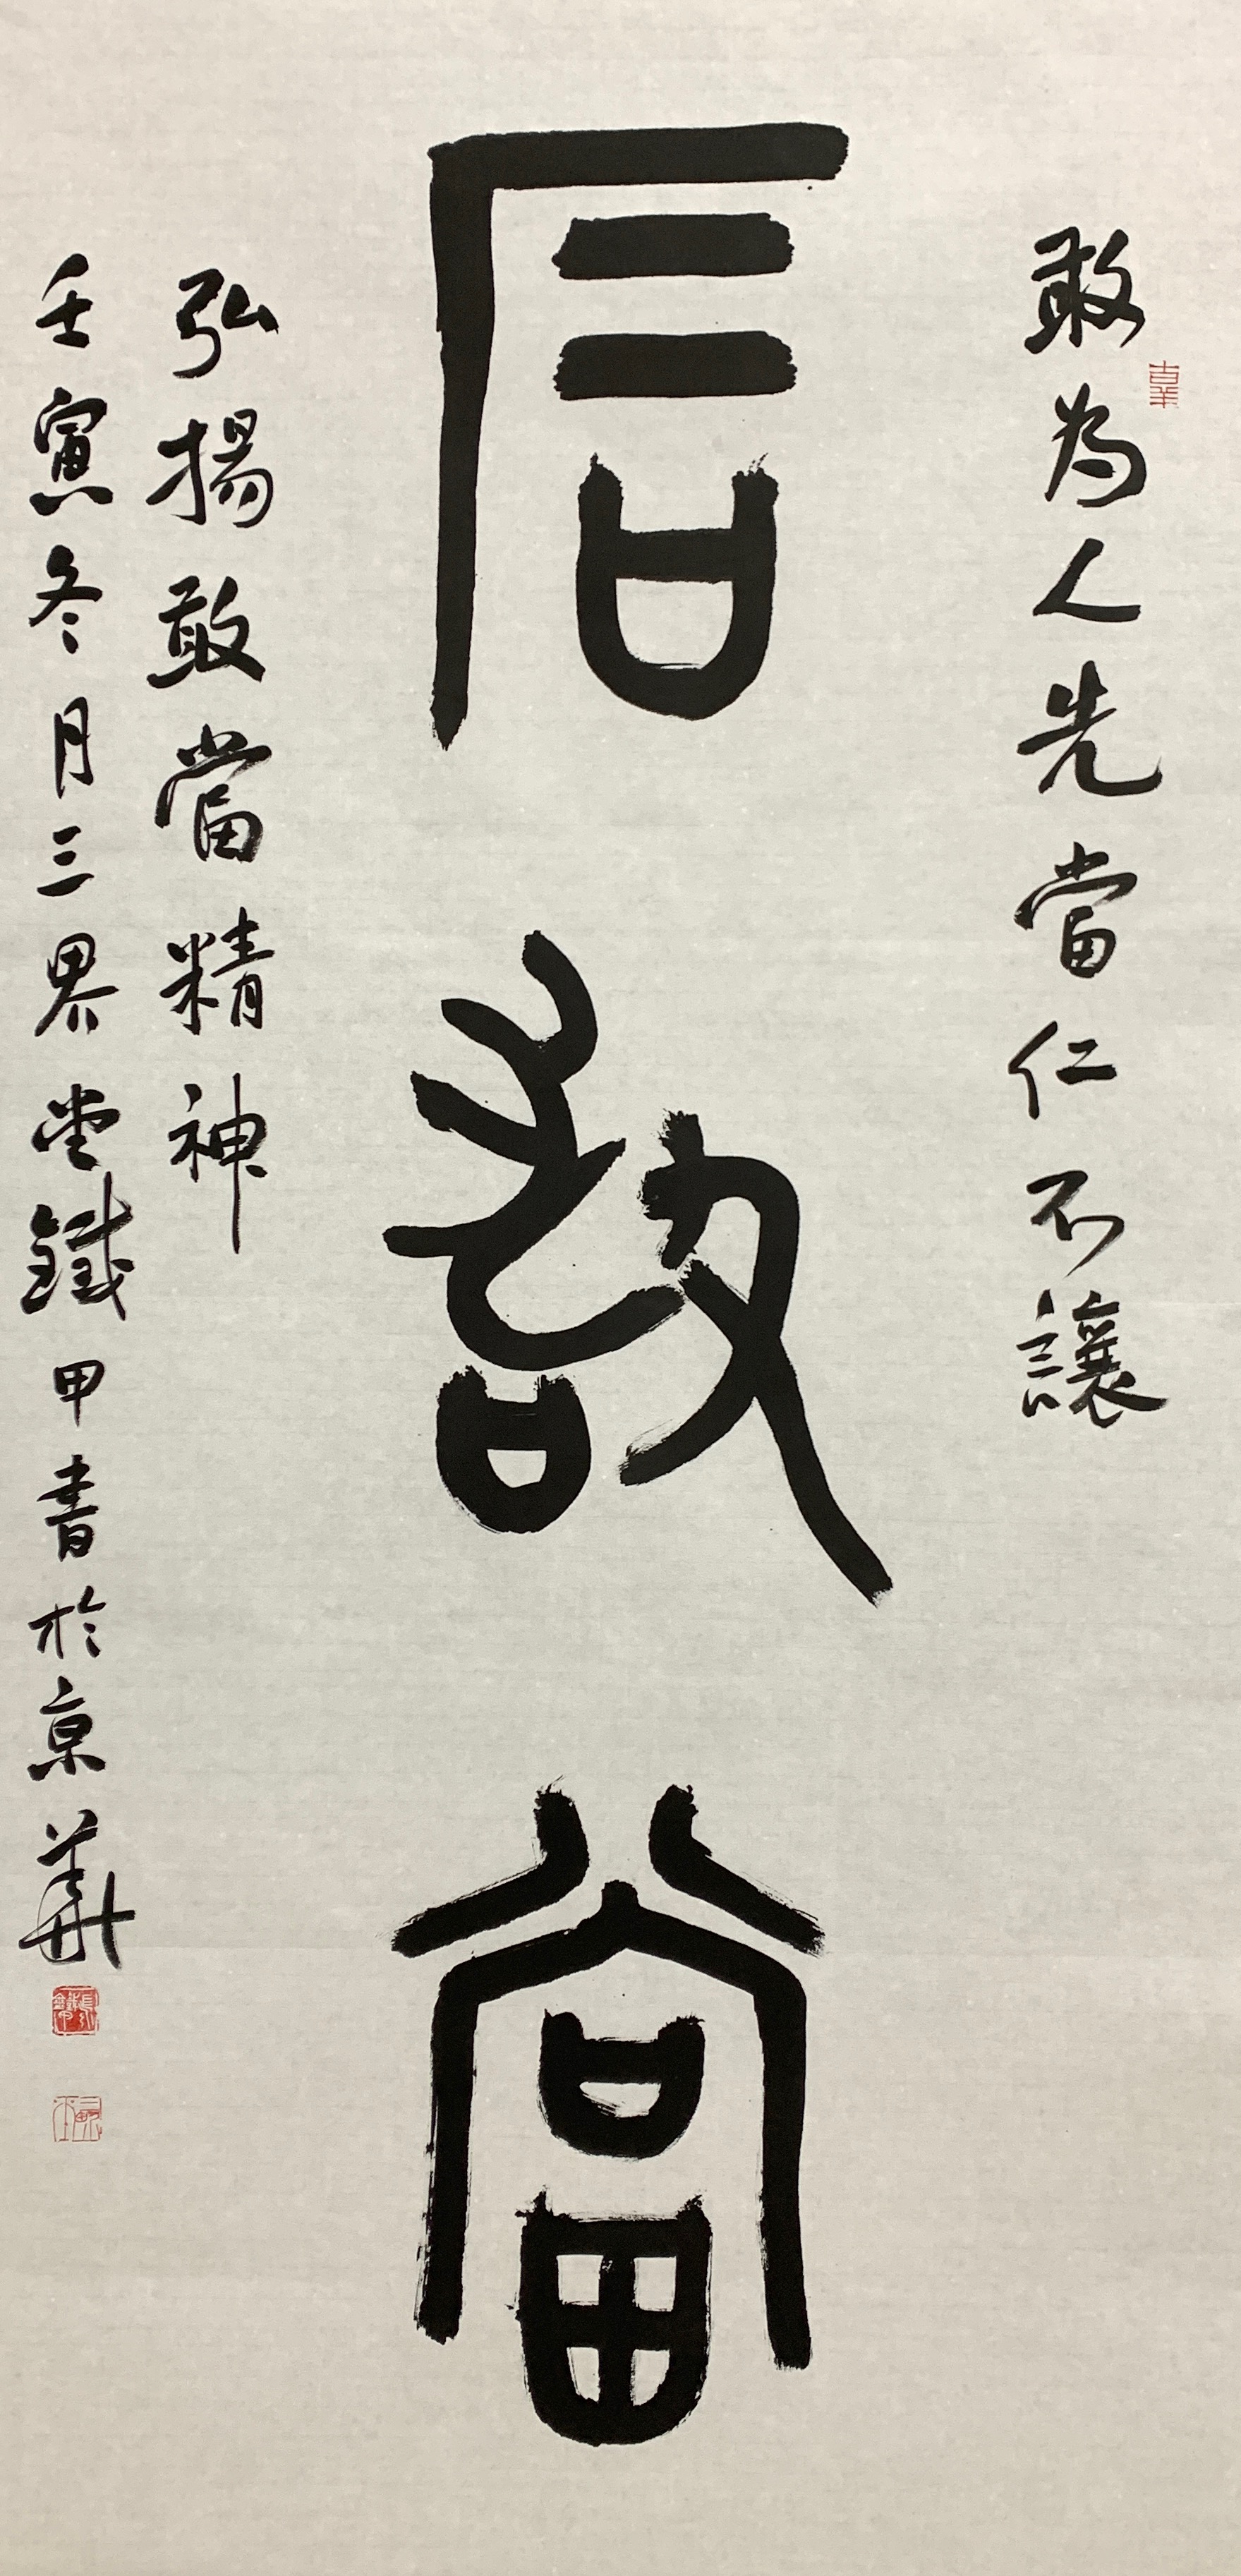 敢為人先當仁不讓
石敢當
弘揚敢當精神
壬寅冬月三界堂鐵甲書於京華